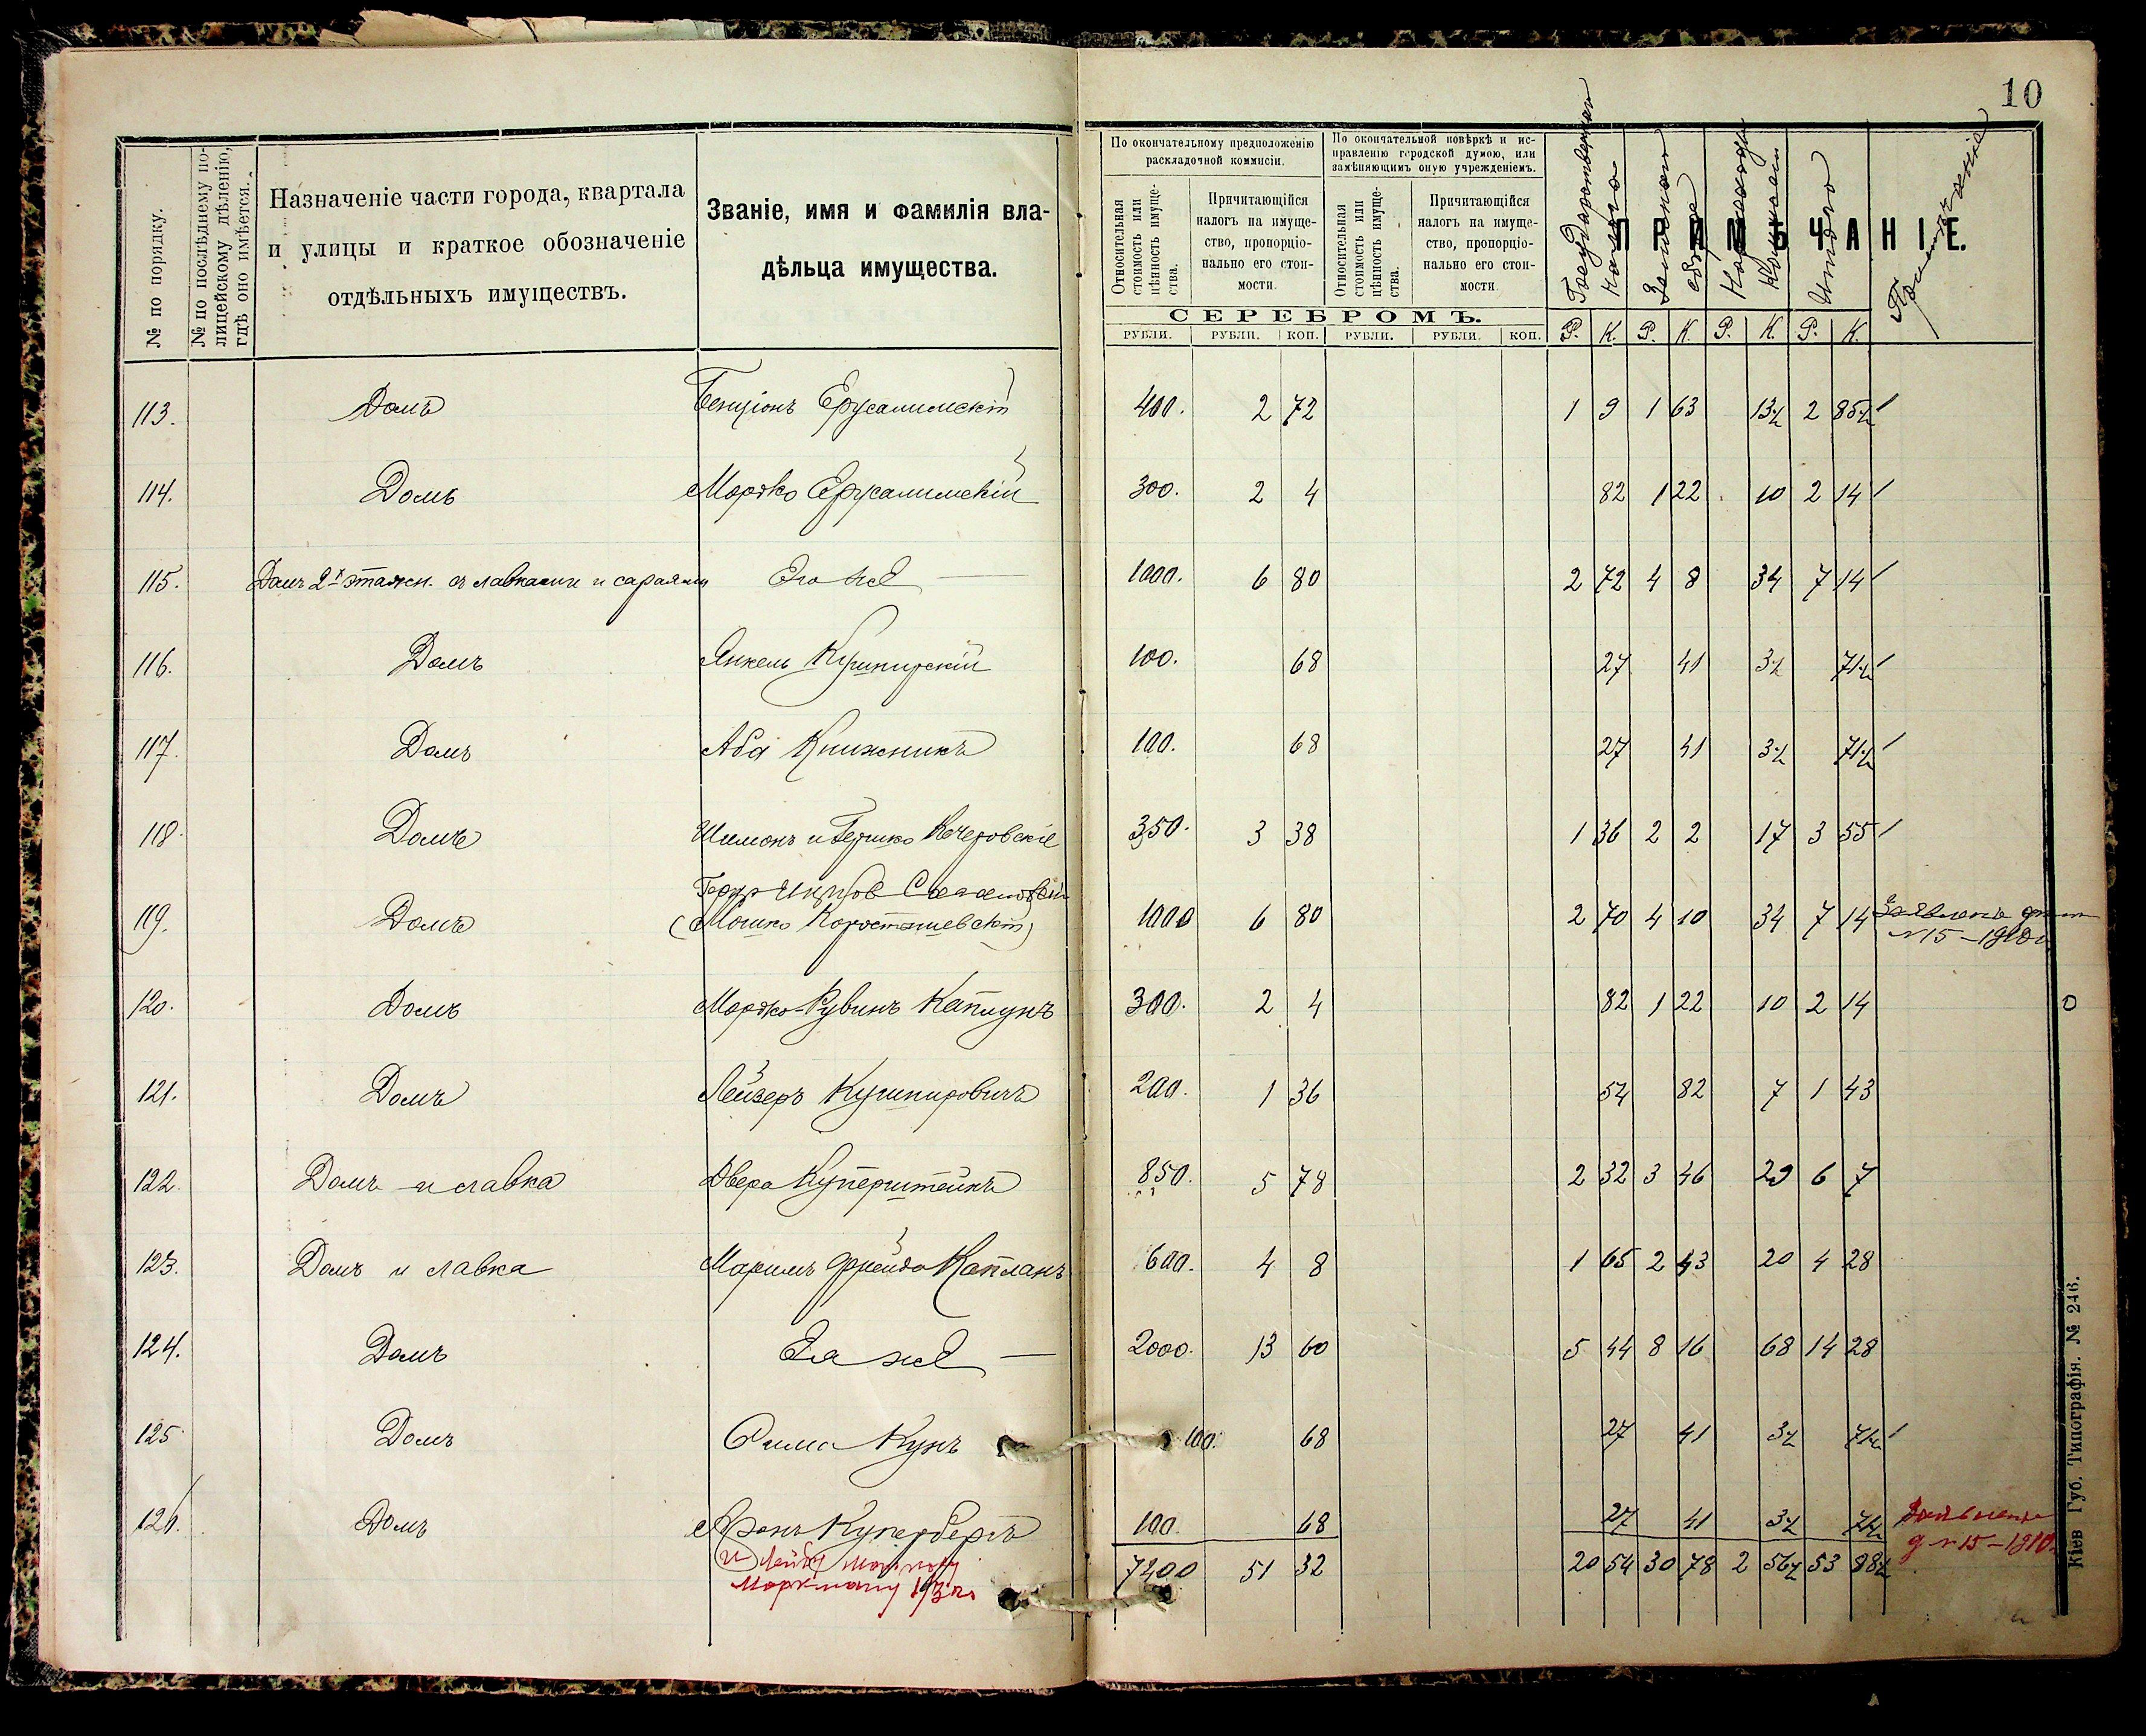 10
№ по порядку.
№ по послѣднему по-
лицейскому дѣленію,
гдѣ оно имѣется.
Назначеніе части города, квартала
и улицы и краткое обозначеніе
отдѣльныхъ имуществъ.
Званіе, имя и фамилія вла-
дѣльца имущества.
По окончательному предположенію
раскладочной коммисіи.
По окончательной повѣркѣ и ис-
правленію городской думою, или
замѣняющимъ оную учрежденіемъ.
Относительная
стоимость или
цѣнность имуще-
ства.
Причитающійся
налогъ на имуще-
ство, пропорціо-
нально его стои-
мости.
Относительная
стоимость или
цѣнность имуще-
ства.
Причитающійся
налогъ на имуще-
ство, пропорціо-
нально его стои-
мости.
ПРИМѢЧАНІЕ.
Государственнаго
налога
Земскаго
сбора
Итого
Примѣчаніе
СЕРЕБРОМЪ.
РУБЛИ. РУБЛИ. КОП. РУБЛИ. РУБЛИ. КОП. Р. К. Р. К. Р. К. Р. К.
113. Домъ Бенціонъ Ерусалимскій 400. 2 72 1 9 1 63 13½ 2 85½
114. Домъ Мордко Ерусалимскій 300. 2 4 82 1 22 10 2 14
115. Домъ 2х этажн. съ лавками и сараями Его же — 1000. 6 80 2 72 4 8 34 7 14
116. Домъ Янкель Кушнирскій 100. 68 27 41 3½ 71½
117. Домъ Аба Книжникъ 100. 68 27 41 3½ 71½
118. Домъ Шимонъ и Гершко Кечеровскіе 350. 3 38 1 36 2 2 17 3 55
119. Домъ
(Мошко Коростышевскій) 1000 6 80 2 70 4 10 34 7 14
№ 15 – 1910
120. Домъ Мордко-Рувинъ Каплунъ 300. 2 4 82 1 22 10 2 14
121. Домъ Лейзеръ Кушнировичъ 200. 1 36 54 82 7 1 43
122. Домъ и лавка Двера Куперштейнъ 850. 5 78 2 32 3 46 29 6 7
123. Домъ и лавка Маримъ Фрейда Капланъ 600. 4 8 1 65 2 43 20 4 28
124. Домъ Ея же — 2000. 13 60 5 44 8 16 68 14 28
125. Домъ Сима Кунъ 100. 68 27 41 3½ 71½
126. Домъ Аронъ Купербергъ 100. 68 27 41 3½ 71½
и Лейбу
7400 51 32 20 54 30 78 2 56½ 53 88½
№ 15 – 1910
Кіев Губ. Типографія. № 246.